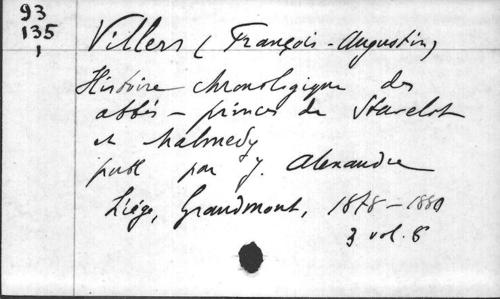 93
135
1
Villers (François-Augustin)
Histoire chronologique des
abbés-princes de Stavelot
et Malmedy
publ par J. Alexandre
Liége, Grandmont, 1878-1880
3 vol. 8